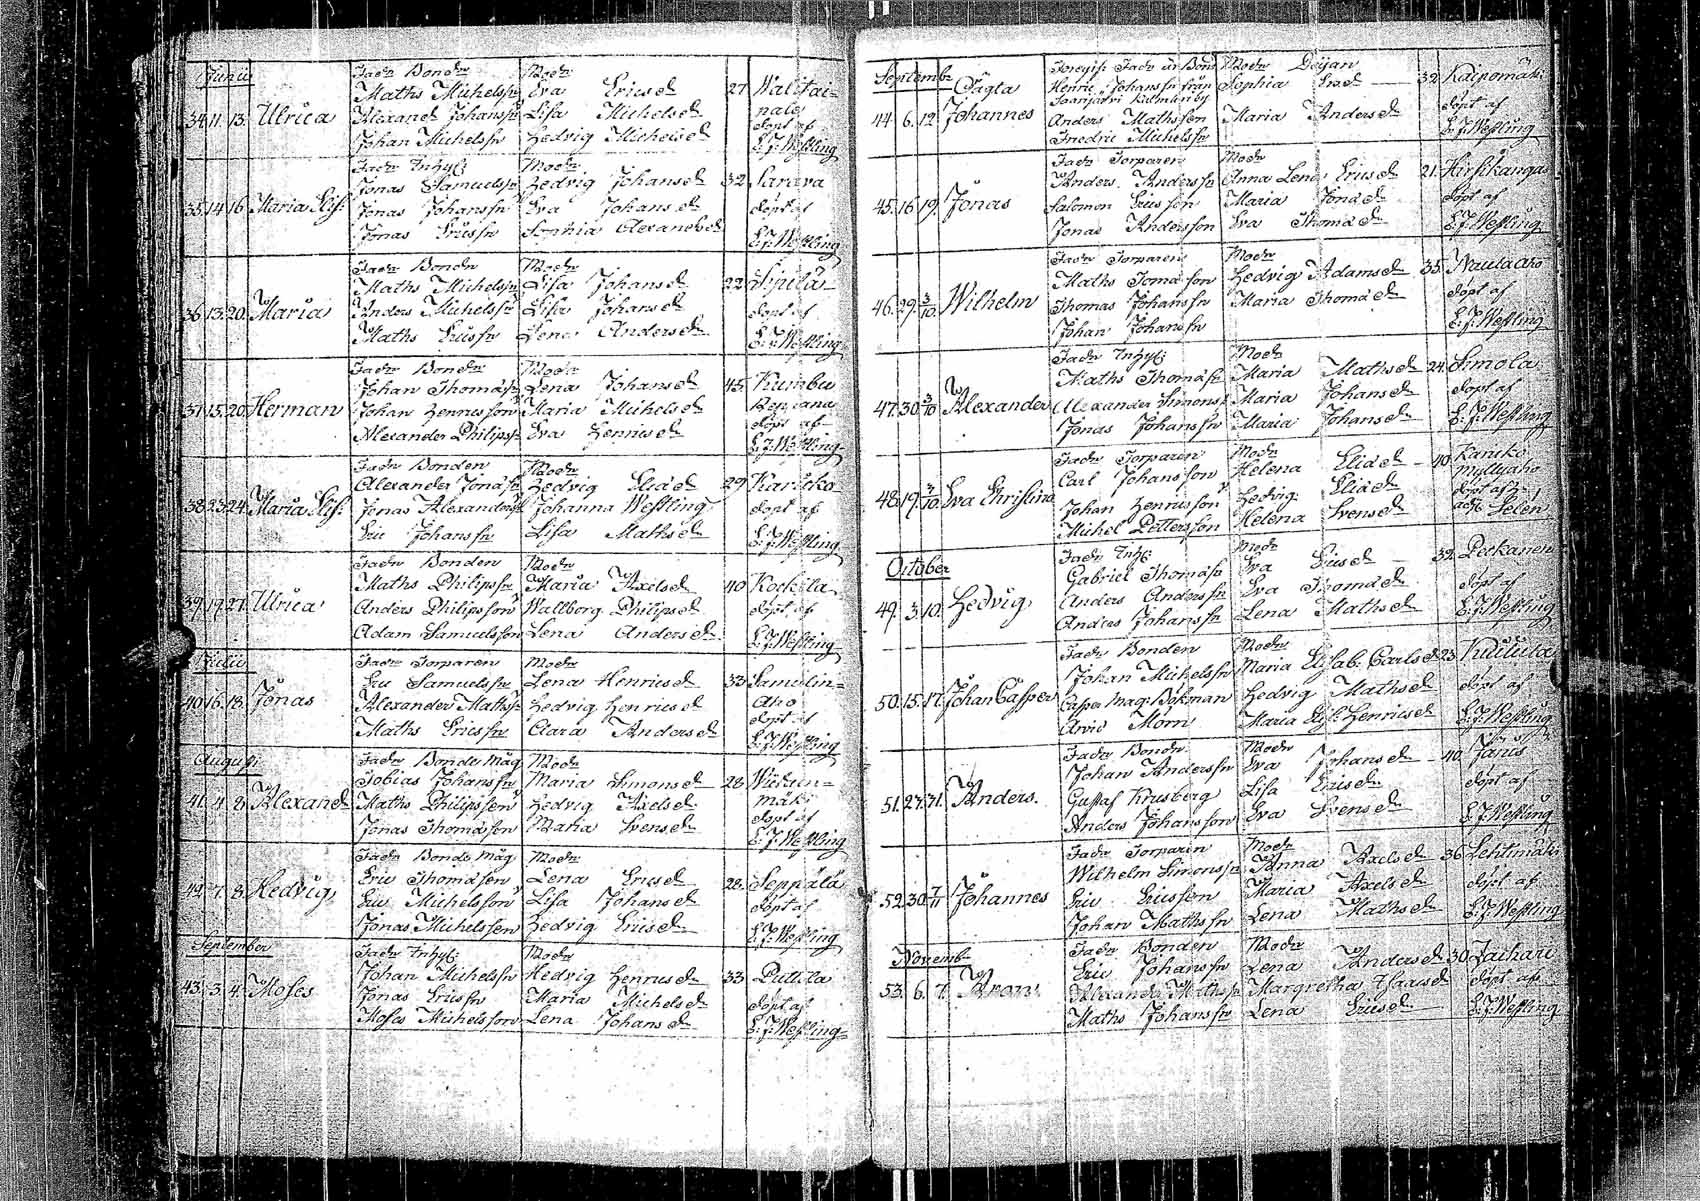 Junii
34 11 13 Ulrica
Fadr Bonden
Maths Michelssn
Alexand Johanssn
Johan Michelssn
Modr
Eva Ericsdr
Lisa Michelsdr
Hedvig Michelsdr
27
Walitai-
nale
döpt af
E.J. Weßling
35 14 16 Maria Elis:
Fadr Inhys:
Jonas Samuelssn
Jonas Johanssn
Jonas Ericssn
Modr
Hedvig Johansdr
Eva Johansdr
Sophia Alexandsdr
32
Sarava
döpt af
E.J. Weßling
36 13 20 Maria
Fadr Bonden
Maths Michelssn
Anders Michelssn
Maths Ericssn
Modr
Lisa Johansdr
Lisa Johansdr
Lena Andersdr
22
Sipilä
döpt af
E.J. Weßling
37 15 20 Herman
Fadr Bonden
Johan Thomassn
Johan Henricsson
Alexander Philipssn
Modr
Lena Johansdr
Maria Michelsdr
Eva Henricsdr
45
Kumbu
döpt af
E.J. Weßling
38 23 24 Maria Elis:
Fadr Bonden
Alexander Jonassn
Jonas Alexanderssn
Eric Johanssn
Modr
Hedvig Eliædr
Johanna Weßling
Lisa Mathsdr
29
Karicko
döpt af
E.J. Weßling
39 19 27 Ulrica
Fadr Bonden
Maths Philipssn
Anders Philipsson
Adam Samuelsson
Modr
Maria Axelsdr
Wallborg Philipsdr
Lena Andersdr
40
Kockila
döpt af
E.J. Weßling
Julii
40 16 18 Jonas
Fadr Torparen
Eric Samuelssn
Alexander Mathssn
Maths Ericssn
Modr
Lena Henricsdr
Hedvig Henricsdr
Clara Andersdr
33
Samulin-
Aho
döpt af
E.J. Weßling
Augusti
41 4 8 Alexandr
Fadr Bonde Mäg
Tobias Johanssn
Maths Philipssen
Jonas Thomasson
Modr
Maria Simonsdr
Hedvig Axelsdr
Maria Svensdr
28
mäki
döpt af
E.J. Weßling
42 7 8 Hedvig
Fadr Bonde Mäg
Eric Thomasson
Eric Michelsson
Jonas Michelsson
Modr
Lena Ericsdr
Lisa Johansdr
Hedvig Ericsdr
28
Seppälä
döpt af
E.J. Weßling
September
43 3 4 Moses
Fadr Inhys:
Johan Michelssn
Jonas Ericssn
Moses Michelsson
Modr
Hedvig Henricsdr
Maria Michelsdr
Lena Johansdr
33
Puttila
döpt af
E.J. Weßling
Septembr
44 6 12 Johannes
Henric Johanssn från
Saarijärvi
Anders Mathsson
Fredric Michelssn
Modr Deijan
Sophia
Maria Andersdr
32
Kaipomäki
döpt af
E.J. Weßling
45 16 19 Jonas
Fadr Torparen
Anders Anderssn
Salomon Ericsson
Jonas Andersson
Modr
Anna Lena Ericsdr
Maria Jonædr
Eva Thomædr
21
Hirsikangas
döpt af
E.J. Weßling
46 29 3/10 Wilhelm
Fadr Torparen
Maths Tomasson
Thomas Johanssn
Johan Johanssn
Modr
Hedvig Adamsdr
Maria Thomædr
35
Nautaaho
döpt af
E.J. Weßling
47 30 3/10 Alexander
Fadr Inhys:
Maths Thomassn
Alexander Simonssn
Jonas Johanssn
Modr
Maria Mathsdr
Maria Johansdr
Maria Johansdr
24
Simola
döpt af
E.J. Weßling
48 19 3/10 Eva Christina
Fadr Torparen
Carl Johansson
Johan Henricsson
Michel Pettersson
Modr
Helena Eliædr
Hedvig Eliædr
Helena Svensdr
40
Karicko
Myllyaho
döpt af
Selen
October
49 3 10 Hedvig
Fadr Inhys:
Gabriel Thomassn
Anders Anderssn
Anders Johanssn
Modr
Eva Ericsdr
Eva Thomædr
Lena Mathsdr
32
Peckanen
döpt af
E.J. Weßling
50 15 17 Johan Casper
Fadr Bonden
Johan Michelssn
Casper Mag: Bökman
Arvid Morn
Modr
Maria Elisab. Carlsdr
Hedvig Mathsdr
Maria Elis: Henricsdr
23
Kuilula
döpt af
E.J. Weßling
51 27 31 Anders
Fadr Bonden
Johan Anderssn
Gustaf Krusberg
Anders Johansson
Modr
Eva Johansdr
Lisa Ericsdr
Eva Svensdr
40
Janis
döpt af
E.J. Weßling
52 30 7/11 Johannes
Fadr Torparen
Wilhelm Simonssn
Eric Ericsson
Johan Mathssn
Modr
Anna Axelsdr
Maria Axelsdr
Lena Mathsdr
36
Lehtimäki
döpt af
E.J. Weßling
Novembr
53 6 7 Aron
Fadr Bonden
Eric Johanssn
Alexander Mathssn
Maths Johanssn
Modr
Lena Andersdr
Margretha Isaacsdr
Lena Ericsdr
30
Zachari
döpt af
E.J. Weßling